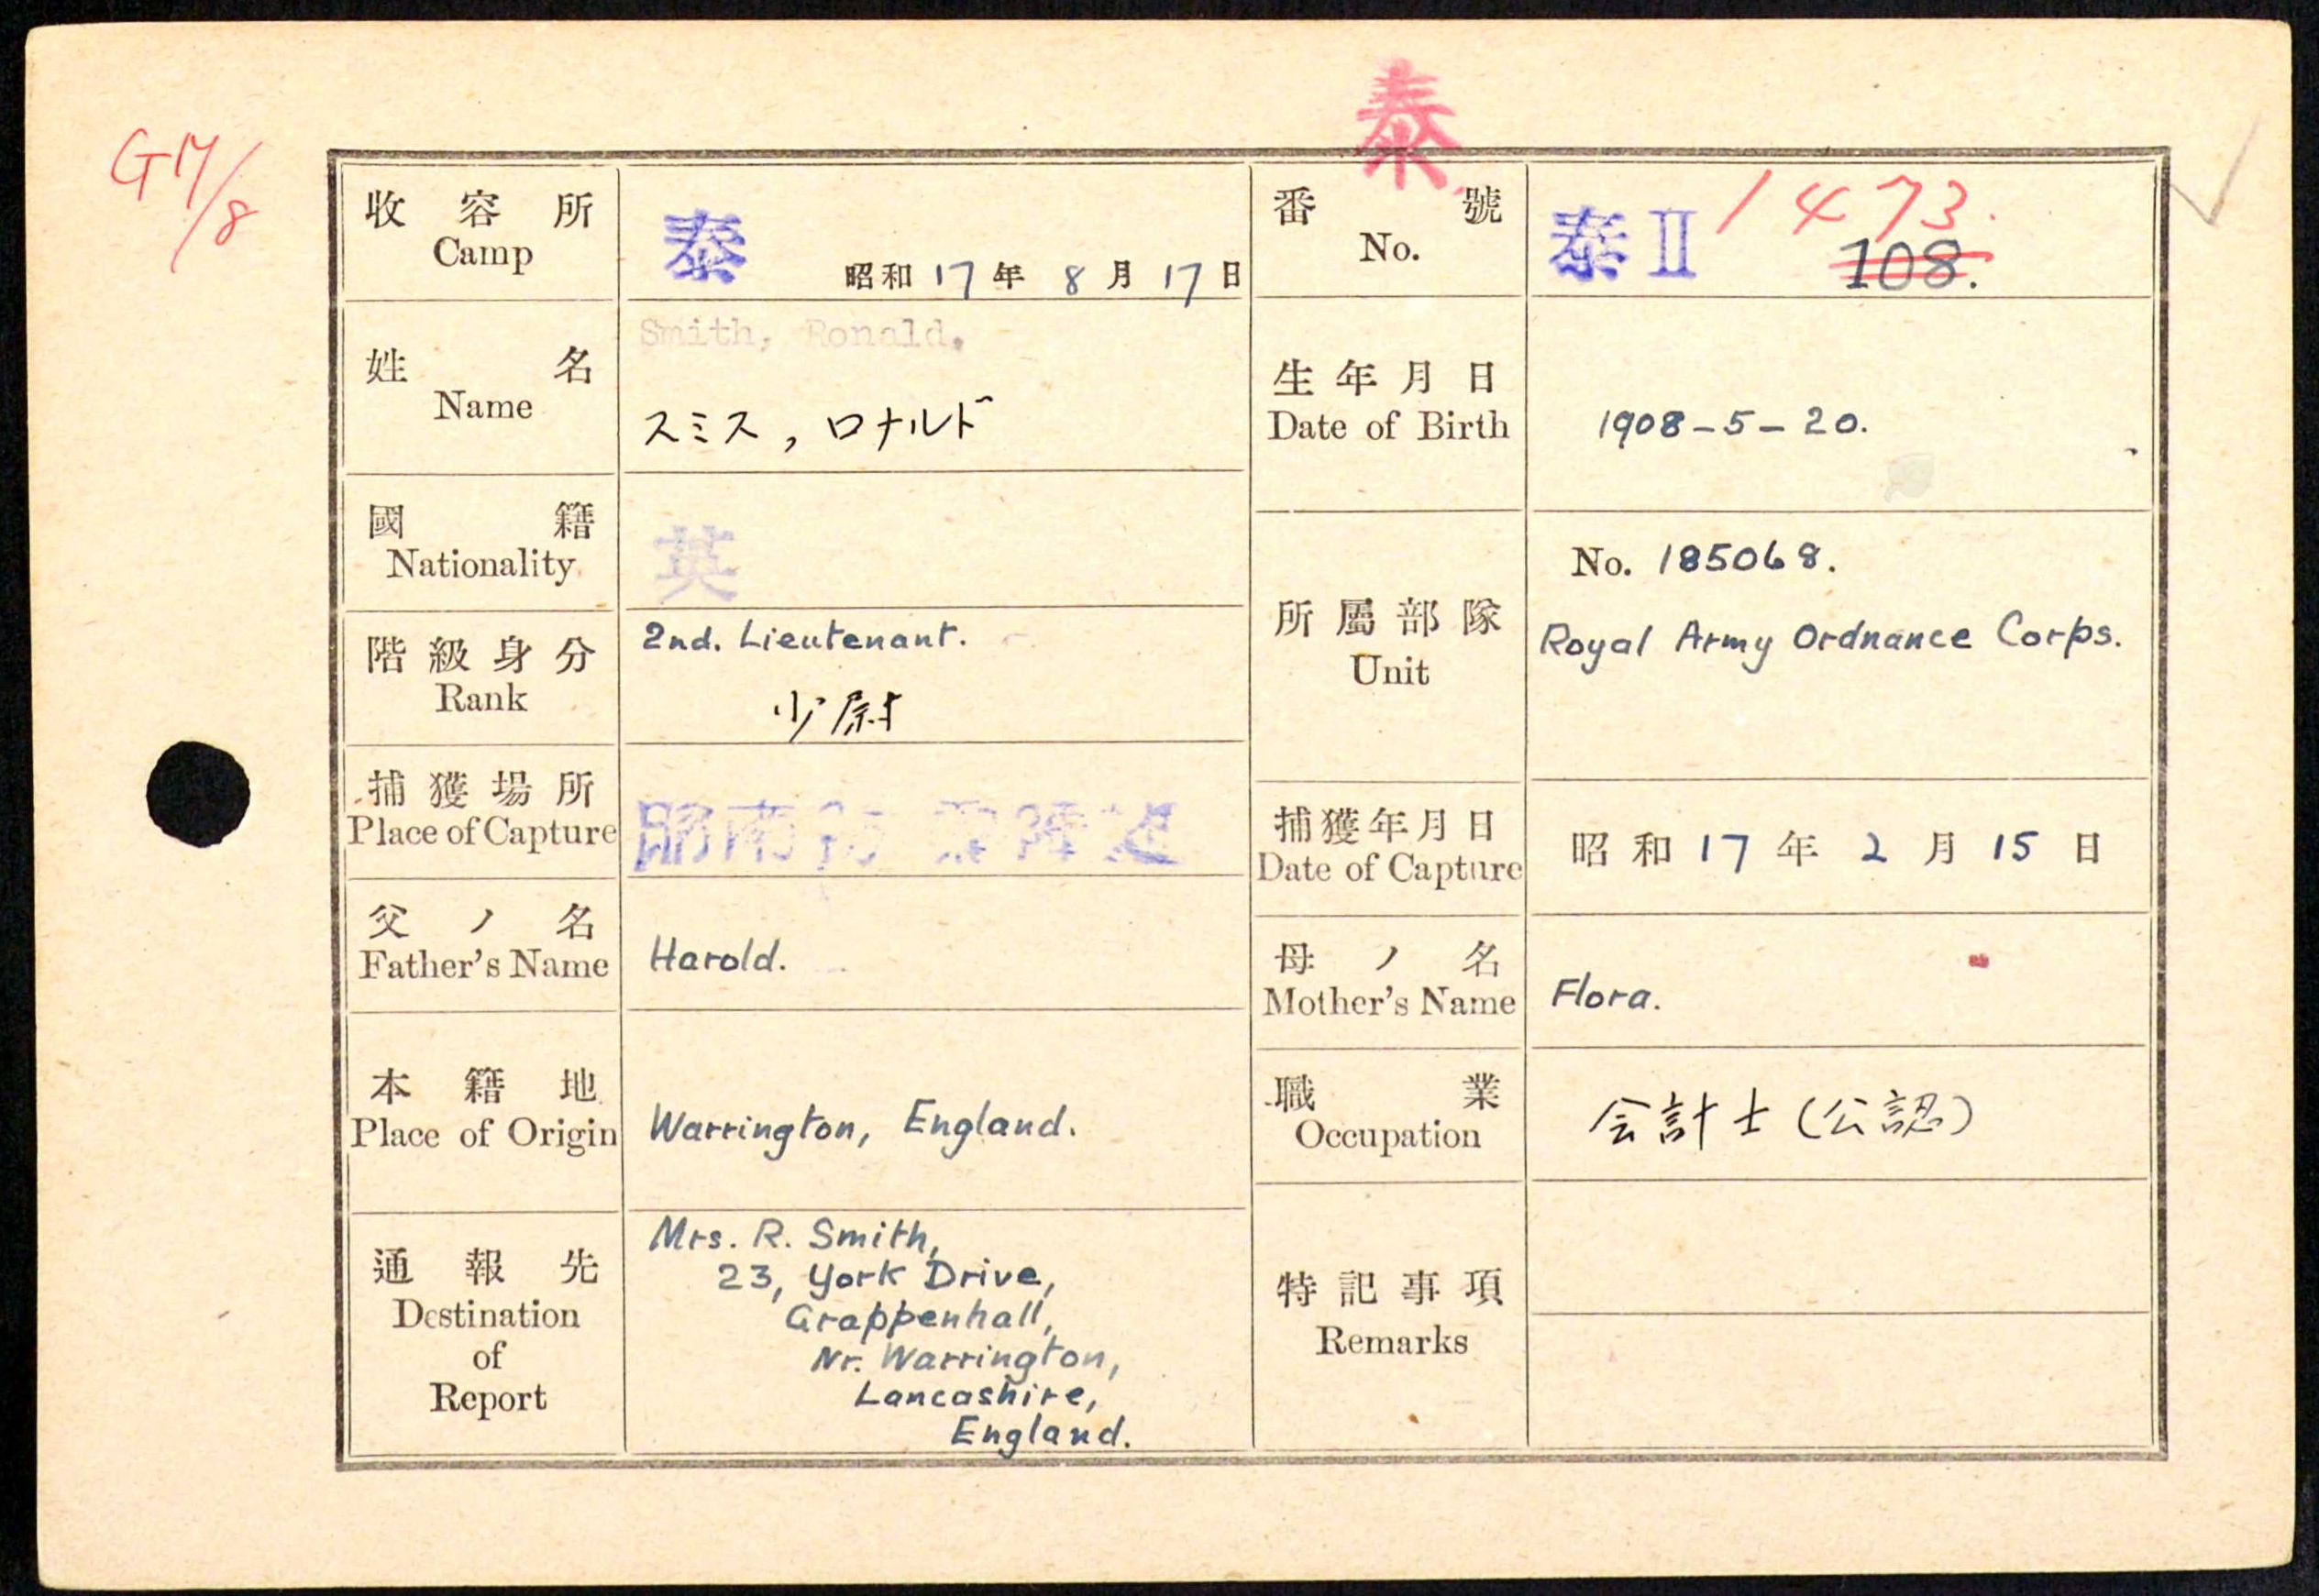 泰
G 17/8
收容所
Camp
泰 昭和17年8月17日
番號
No.
泰Ⅱ 1473.
108.
姓名
Name
Smith, Ronald.
スミス, ロナルド
生年月日
Date of Birth
1908-5-20.
國籍
Nationality
英
所屬部隊
Unit
No. 185068.
Royal Army Ordnance Corps.
階級身分
Rank
2nd. Lieutenant.
少尉
捕獲場所
Place of Capture
昭南
捕獲年月日
Date of Capture
昭和17年2月15日
父ノ名
Father's Name
Harold.
母ノ名
Mother's Name
Flora.
本籍地
Place of Origin
Warrington, England.
職業
Occupation
会計士(公認)
通報先
Destination
of
Report
Mrs. R. Smith,
23, York Drive,
Grappenhall,
Nr. Warrington,
Lancashire,
England.
特記事項
Remarks